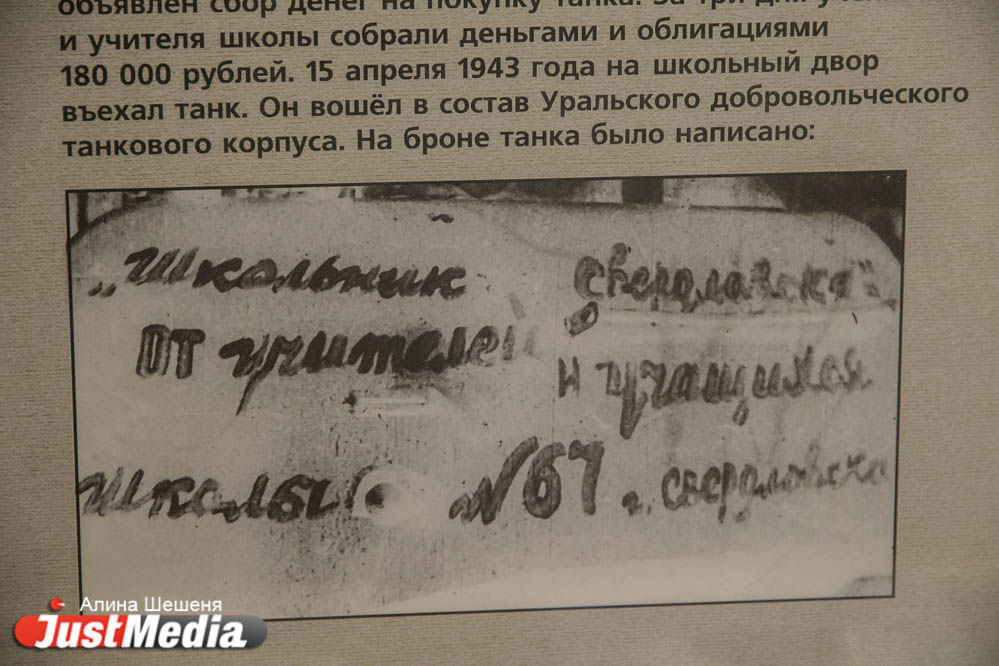 объявлен сбор денег на покупку танка. За три дня
и учителя школы собрали деньгами и облигациями
180 000 рублей. 15 апреля 1943 года на школьный двор
въехал танк. Он вошёл в состав Уральского добровольческого
танкового корпуса. На броне танка было написано:
„Школьник Свердловска"
от учителей и учащихся
школы №67 г. Свердловска
Алина Шешеня
JustMedia